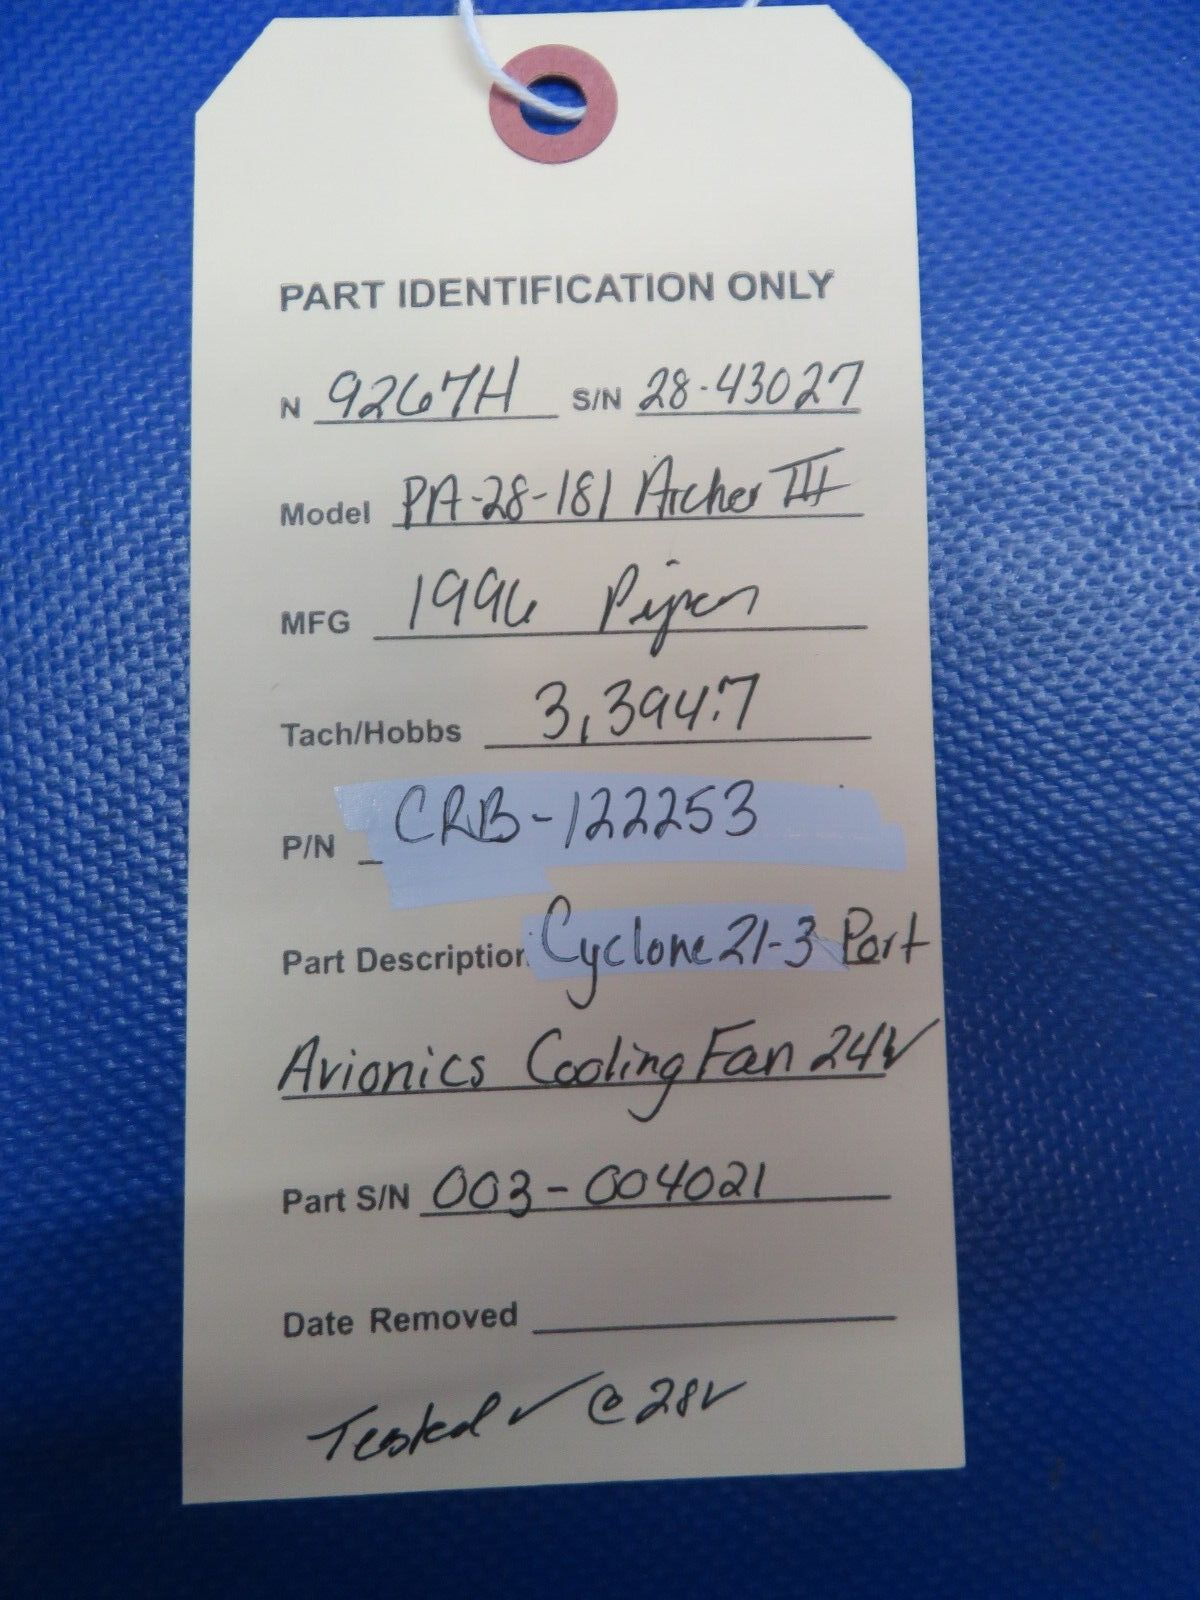 PART IDENTIFICATION ONLY
N 9267H S/N 28-43027
Model PA-28-181 Archer III
MFG 1996 Piper
Tach/Hobbs 3,394.7
P/N CRB-122253
Part Description Cyclone 21-3 Port
Avionics Cooling Fan 24V
Part S/N 003-004021
Date Removed
Tested ✓ @ 28V